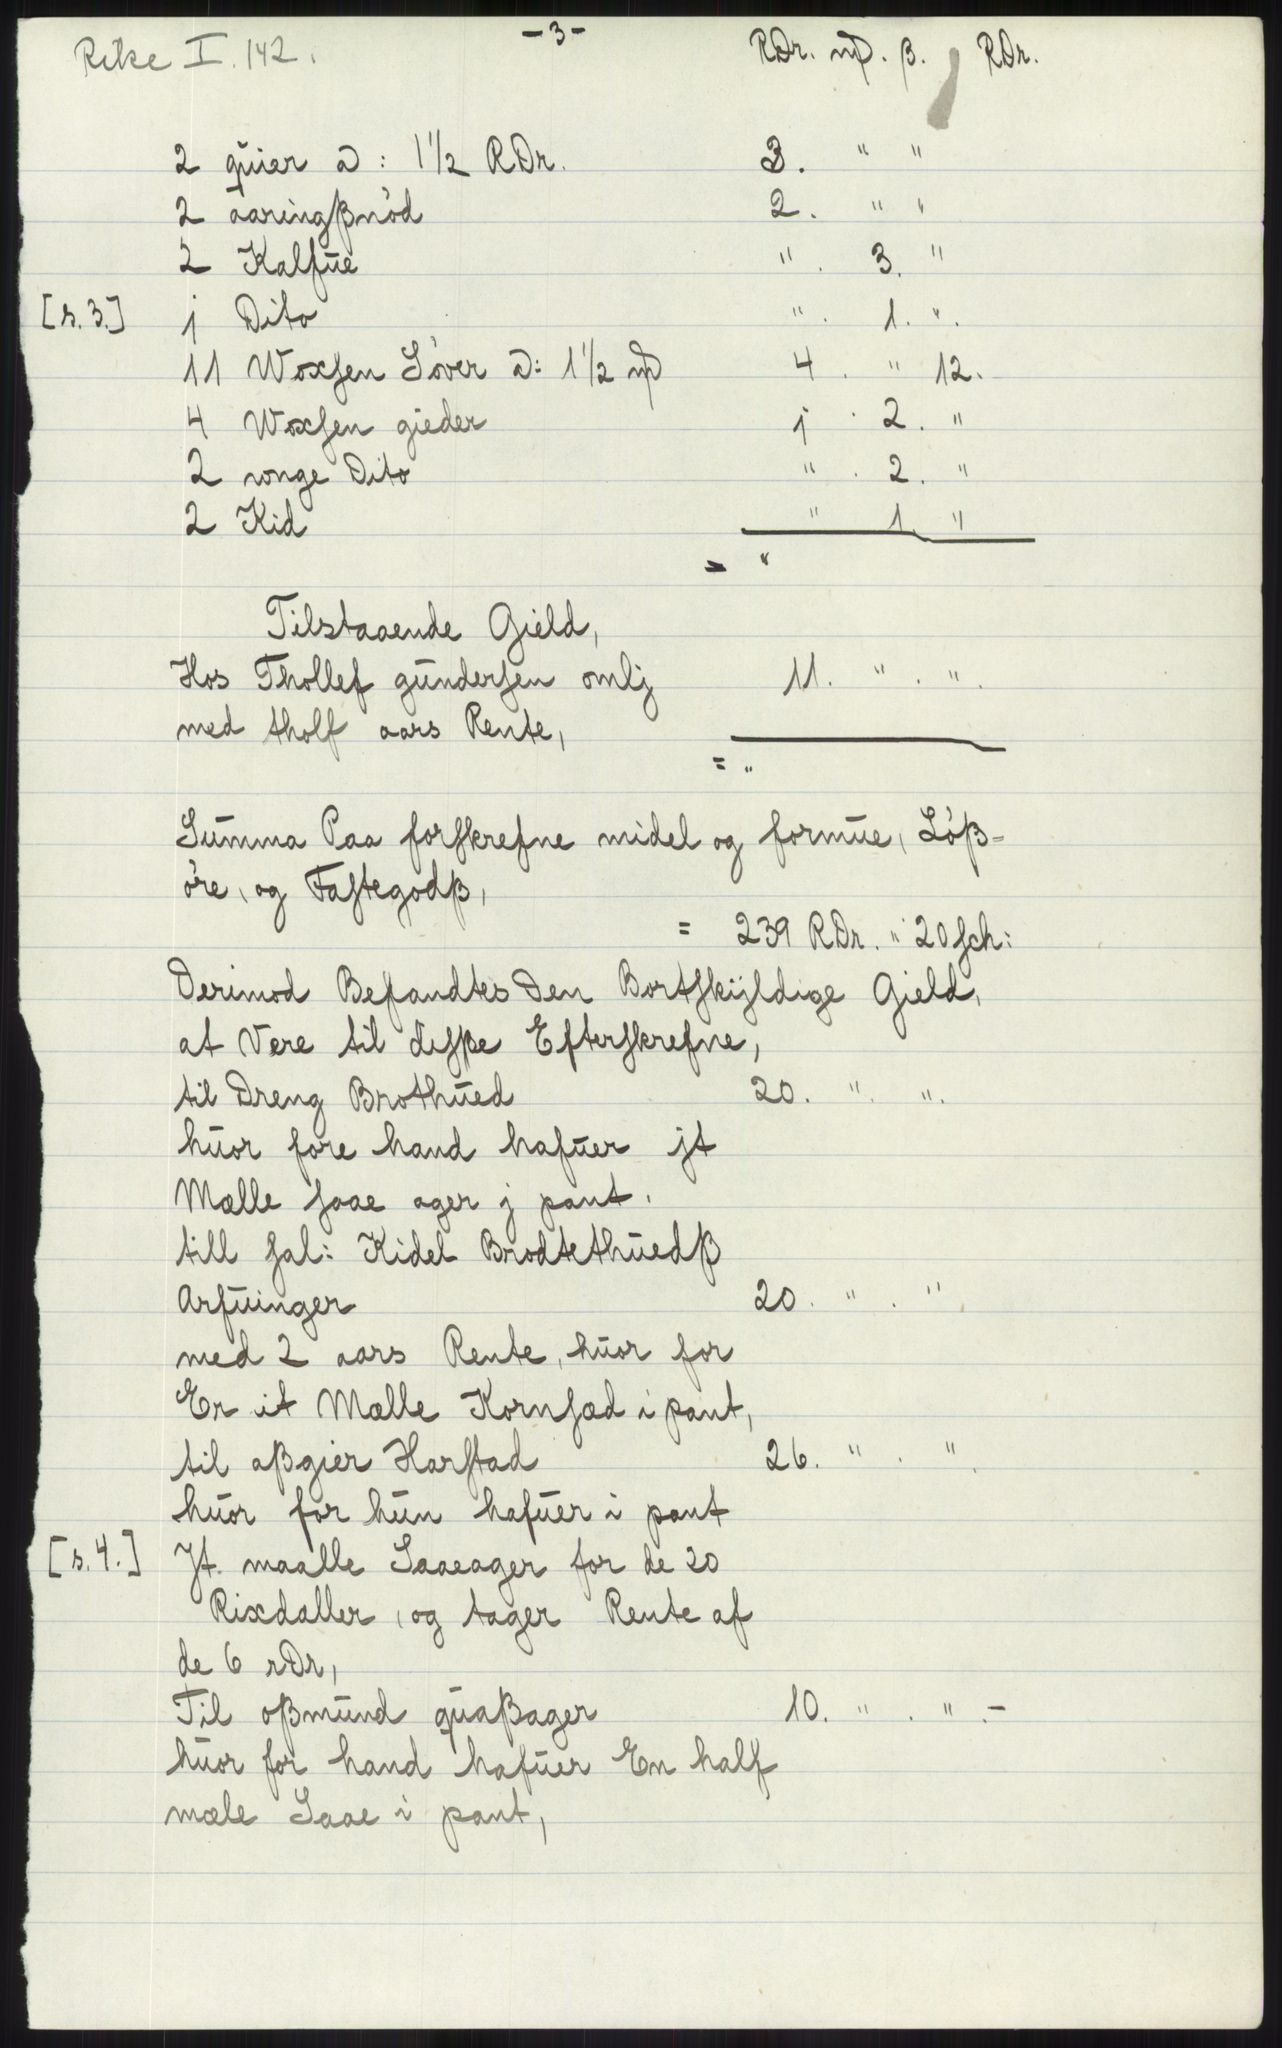 Rike I. 142.
-3-
RDr. mþ. β. RDr.
2 quier a: 1 1/2 RDr. 3. " "
2 aaringβnød 2. " "
2 Kalfue " . 3. "
[s. 3.] j Dito " . 1. " .
11 Woxsen Søver a: 1 1/2 mþ 4 . " 12.
4 Woxsen gieder j . 2. "
2 wnge Dito " . 2. "
2 Kid " 1. "
= "
Tilstaaende Gield,
Hos Thollef gundersen omlj 11. " . " .
med tholf aars Rente,
= "
Summa Paa forskrefne midel og formue, Løβ-
øre, og Fastegodβ,
= 239 RDr. " 20 sch:
Derimod Befandtes den Bortskyldige Gield,
at Vere til disβe Efterskrefne,
til Dreng Brothued 20. " . " .
huor fore hand hafuer jt
Mælle saae ager j pant.
till sal: Kidel Brodtethuedβ
Arfuinger 20. " . "
med 2 aars Rente, huor for
Er it Mælle Kornsæd i pant,
til aβgier Harstad 26. " . " .
huor for hun hafuer i pant
[s. 4.] Jt. maalle Saaeager for de 20
Rixdaller, og tager Rente af
de 6 rDr,
Til oβmund quaβager 10. " . " . -
huor for hand hafuer En half
mæle Saae i pant,